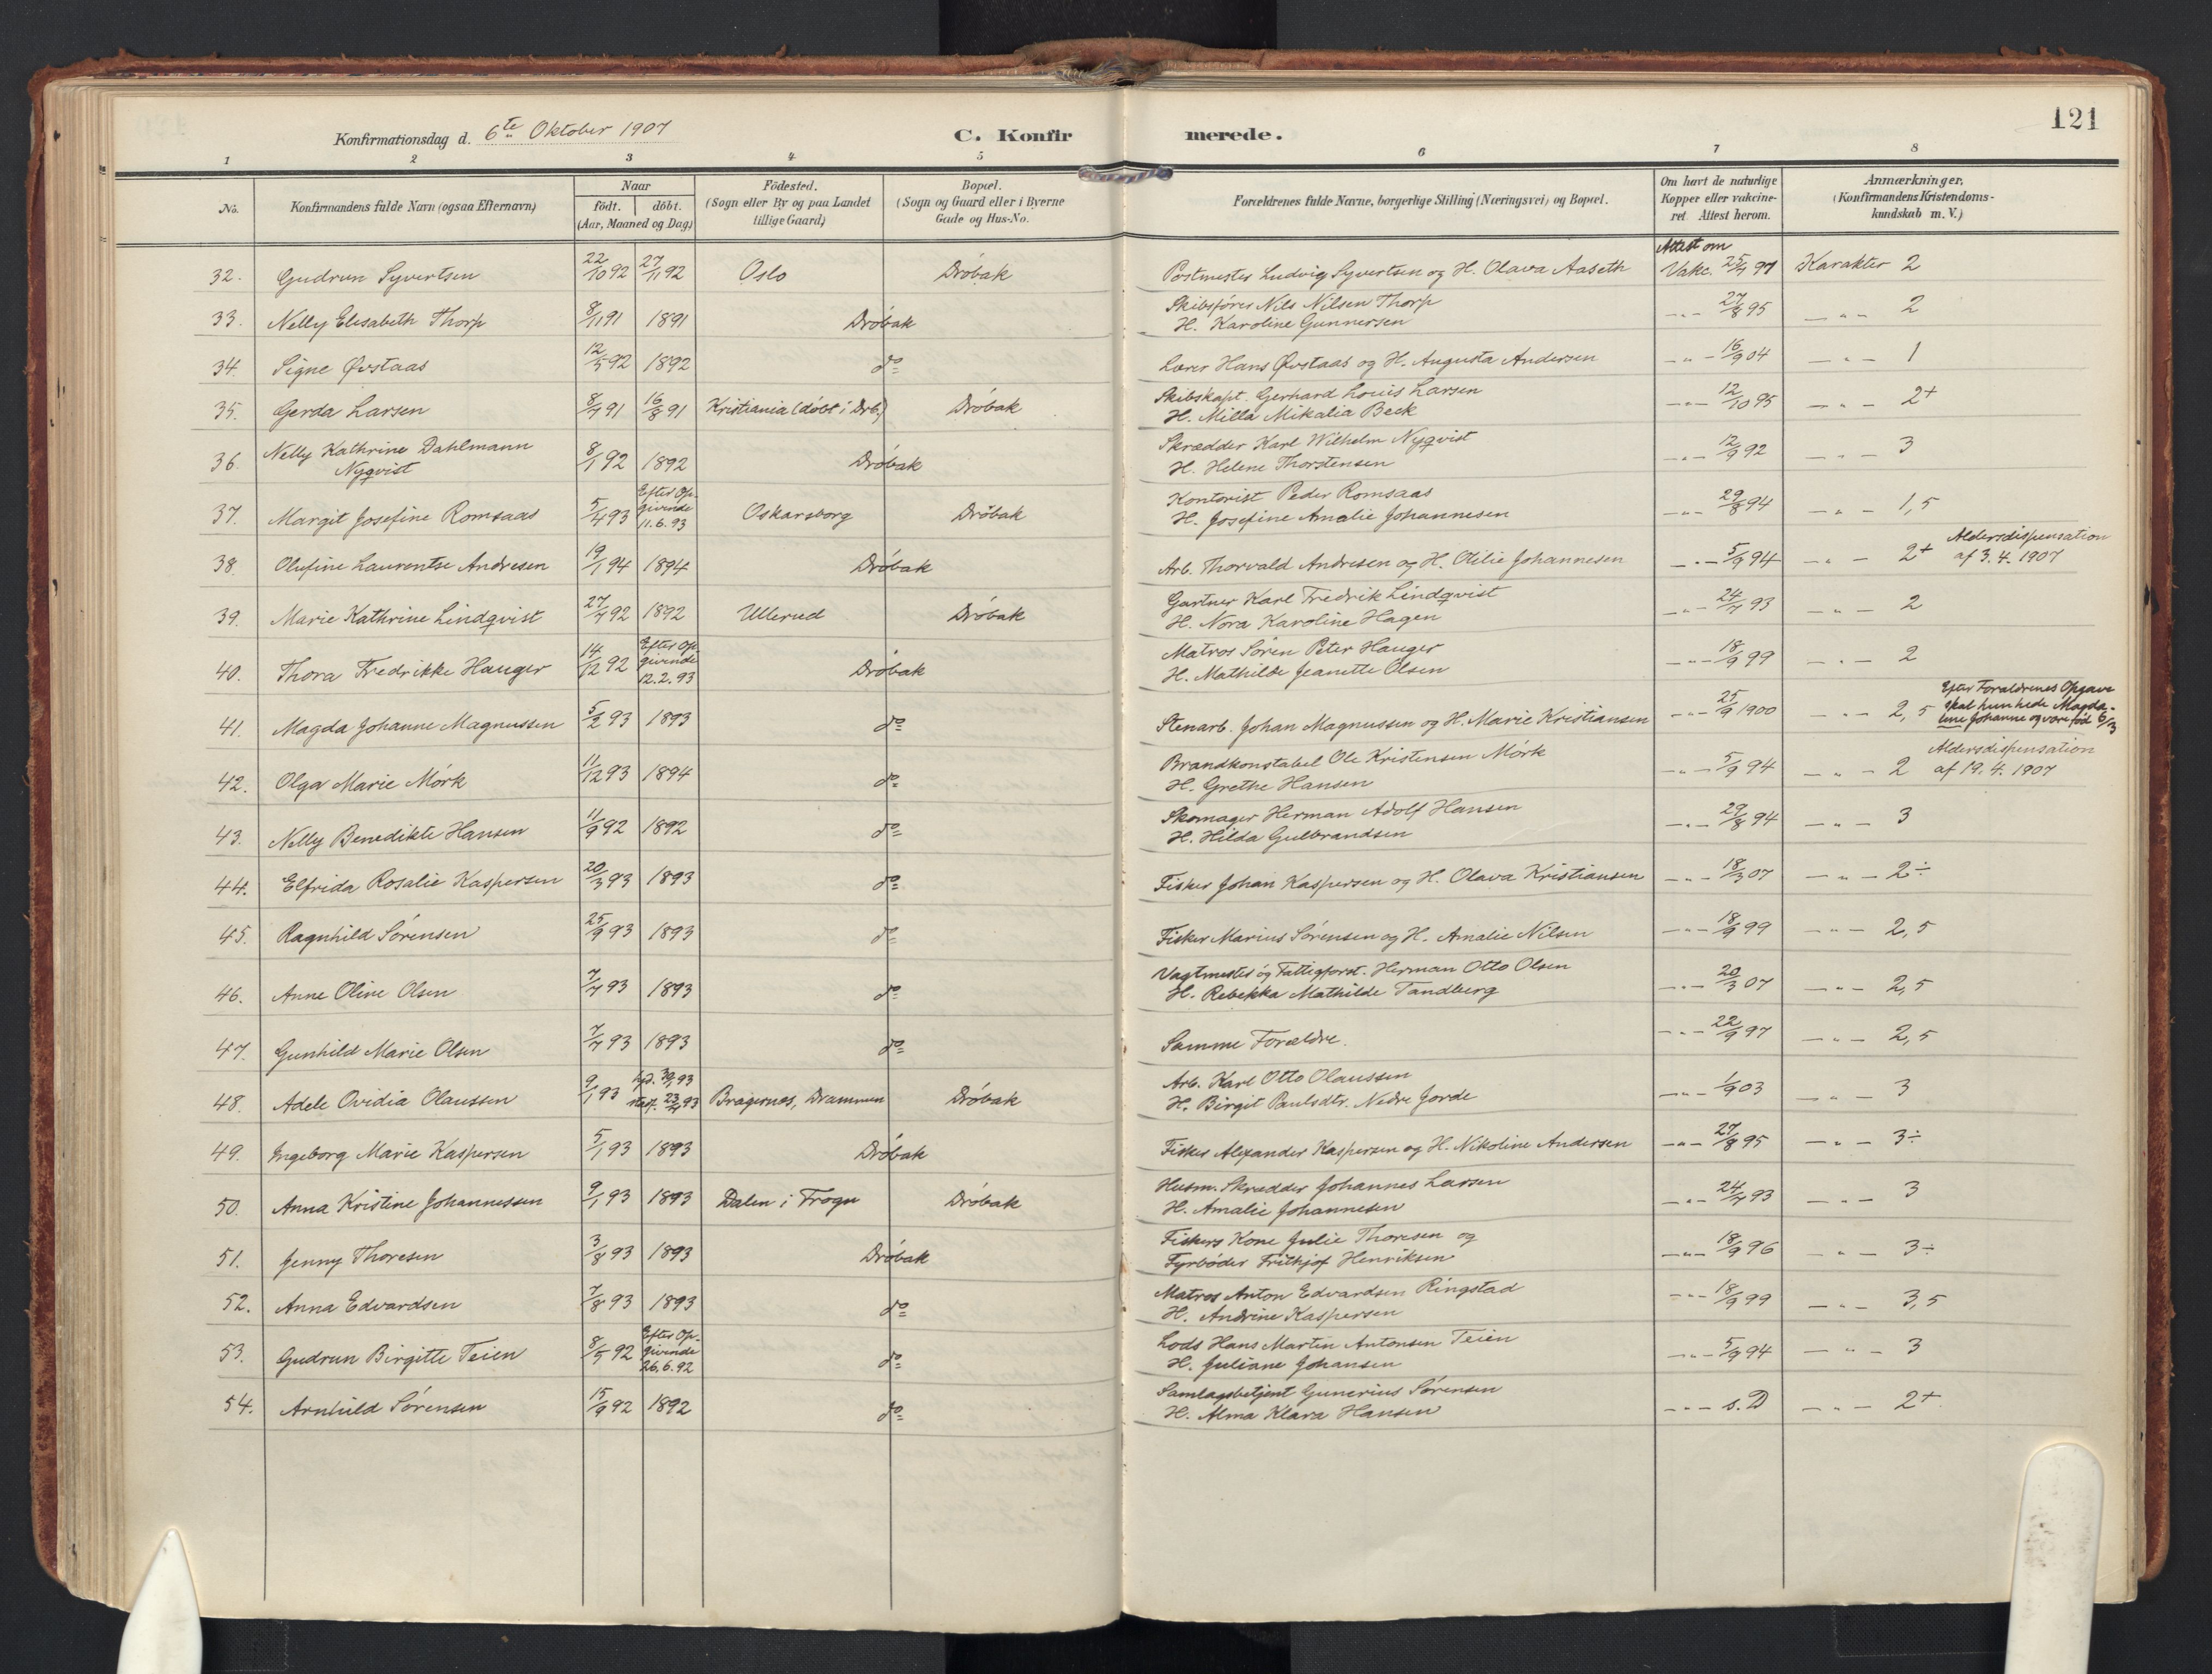 121
Konfirmationsdag d. 6te Oktober 1907 C. Konfirmerede.
1 2 3 4 5 6 7 8
No. Konfirmandens fulde Navn (ogsaa Efternavn) Naar födt. döbt. (Aar, Maaned og Dag) Födested. (Sogn eller By og paa Landet tillige Gaard) Bopæl. (Sogn og Gaard eller i Byerne Gade og Hus-No. Forældrenes fulde Navne, borgerlige Stilling (Næringsvei) og Bopæl. Om havt de naturlige Kopper eller vakcineret. Attest herom. Anmærkninger, (Konfirmandens Kristendomskundskab m. V.)
32. Gudrun Syvertsen 22/10 92 27/11 92 Oslo Dröbak Postmester Ludvig Syvertsen og H. Olava Aaseth Attest om Vakc. 25/7 97 Karakter 2
33. Nelly Elisabeth Thorp 8/11 91 1891 Dröbak Skibsfører Nils Nilsen Thorp
H. Karoline Gunnersen — „ — 27/8 95 — „ — 2
34. Signe Øvstaas 12/5 92 1892 do Lærer Hans Øvstaas og H. Augusta Andersen — „ — 16/9 04 — „ — 1
35. Gerda Larsen 8/7 91 16/8 91 Kristiania (döbt i Drb.) Dröbak Skibskapt. Gerhard Louis Larsen
H. Milla Mikalia Beck — „ — 12/10 95 — „ — 2+
36. Nelly Kathrine Dahlmann
Nyqvist 8/1 92 1892 Dröbak Skrædder Karl Wilhelm Nyqvist
H. Helene Thorstensen — „ — 12/9 92 — „ — 3
37. Margit Josefine Romsaas 5/4 93 Efter Opgivende 11.6.93 Oskarsborg Dröbak Kontorist Peder Romsaas
H. Josefine Amalie Johannesen — „ — 29/8 94 — „ — 1,5
38. Olufine Laurentse Andresen 19/1 94 1894 Dröbak Arb. Thorvald Andresen og H. Otilie Johannesen — „ — 5/9 94 — „ — 2+ Aldersdispensation
af 3. 4. 1907
39. Marie Kathrine Lindqvist 27/7 92 1892 Ullerud Dröbak Gartner Karl Fredrik Lindqvist
H. Nora Karoline Hagen — „ — 24/7 93 — „ — 2
40. Thora Fredrikke Hauger 14/12 92 Efter Opgivende 12.2.93 Dröbak Matros Sören Peter Hauger
H. Mathilde Jeanette Olsen — „ — 18/9 99 — „ — 2
41. Magda Johanne Magnussen 5/2 93 1893 do Stenarb. Johan Magnussen og H. Marie Kristiansen — „ — 25/9 1900 — „ — 2,5 Efter Forældrenes Opgave
skal hun hede Magda-
lene Johanne og være föd 6/3
42. Olga Marie Mörk 11/12 93 1894 do Brandkonstabel Ole Kristensen Mörk
H. Grethe Hansen — „ — 5/9 94 — „ — 2 Aldersdispensation
af 19. 4. 1907
43. Nelly Benedikte Hansen 11/9 92 1892 do Skomager Herman Adolf Hansen
H. Hilda Gulbrandsen — „ — 29/8 94 — „ — 3
44. Elfrida Rosalie Kaspersen 20/3 93 1893 do Fisker Johan Kaspersen og H. Olava Kristiansen — „ — 18/3 07 — „ — 2÷
45. Ragnhild Sörensen 25/9 93 1893 do Fisker Marius Sörensen og H. Amalie Nilsen — „ — 18/9 99 — „ — 2,5
46. Anne Oline Olsen 7/7 93 1893 do Vagtmester og Fattigforst. Herman Otto Olsen
H. Rebekka Mathilde Tandberg — „ — 20/3 07 — „ — 2,5
47. Gunhild Marie Olsen 7/7 93 1893 do Samme Forældre. — „ — 22/9 97 — „ — 2,5
48. Adele Ovidia Olaussen 9/1 93 93 23/4 93 Bragernes, Drammen Dröbak Arb. Karl Otto Olaussen
H. Birgit Paulsdtr. Nedre Jorde — „ — 1/9 03 — „ — 3
49. Ingeborg Marie Kaspersen 5/1 93 1893 Dröbak Fisker Alexander Kaspersen og H. Nikoline Andersen — „ — 27/8 95 — „ — 3÷
50. Anna Kristine Johannessen 9/1 93 1893 Dalen i Frogn Dröbak Husm. Skrædder Johannes Larsen
H. Amalie Johannesen — „ — 24/7 93 — „ — 3
51. Jenny Thoresen 3/8 93 1893 Dröbak Fiskers Kone Julie Thoresen og
Fyrböder Frithjof Henriksen — „ — 18/9 96 — „ — 3÷
52. Anna Edvardsen 7/8 93 1893 do Matros Anton Edvardsen Ringstad
H. Andrine Kaspersen — „ — 18/9 99 — „ — 3,5
53. Gudrun Birgitte Teien 8/5 92 Efter Opgivende 26.6.92 do Lods Hans Martin Antonsen Teien
H. Juliane Johansen — „ — 5/9 94 — „ — 3
54. Arnhild Sörensen 15/9 92 1892 do Samlagsbetjent Gunerius Sörensen
H. Alma Klara Hansen — „ — s. D — „ — 2+